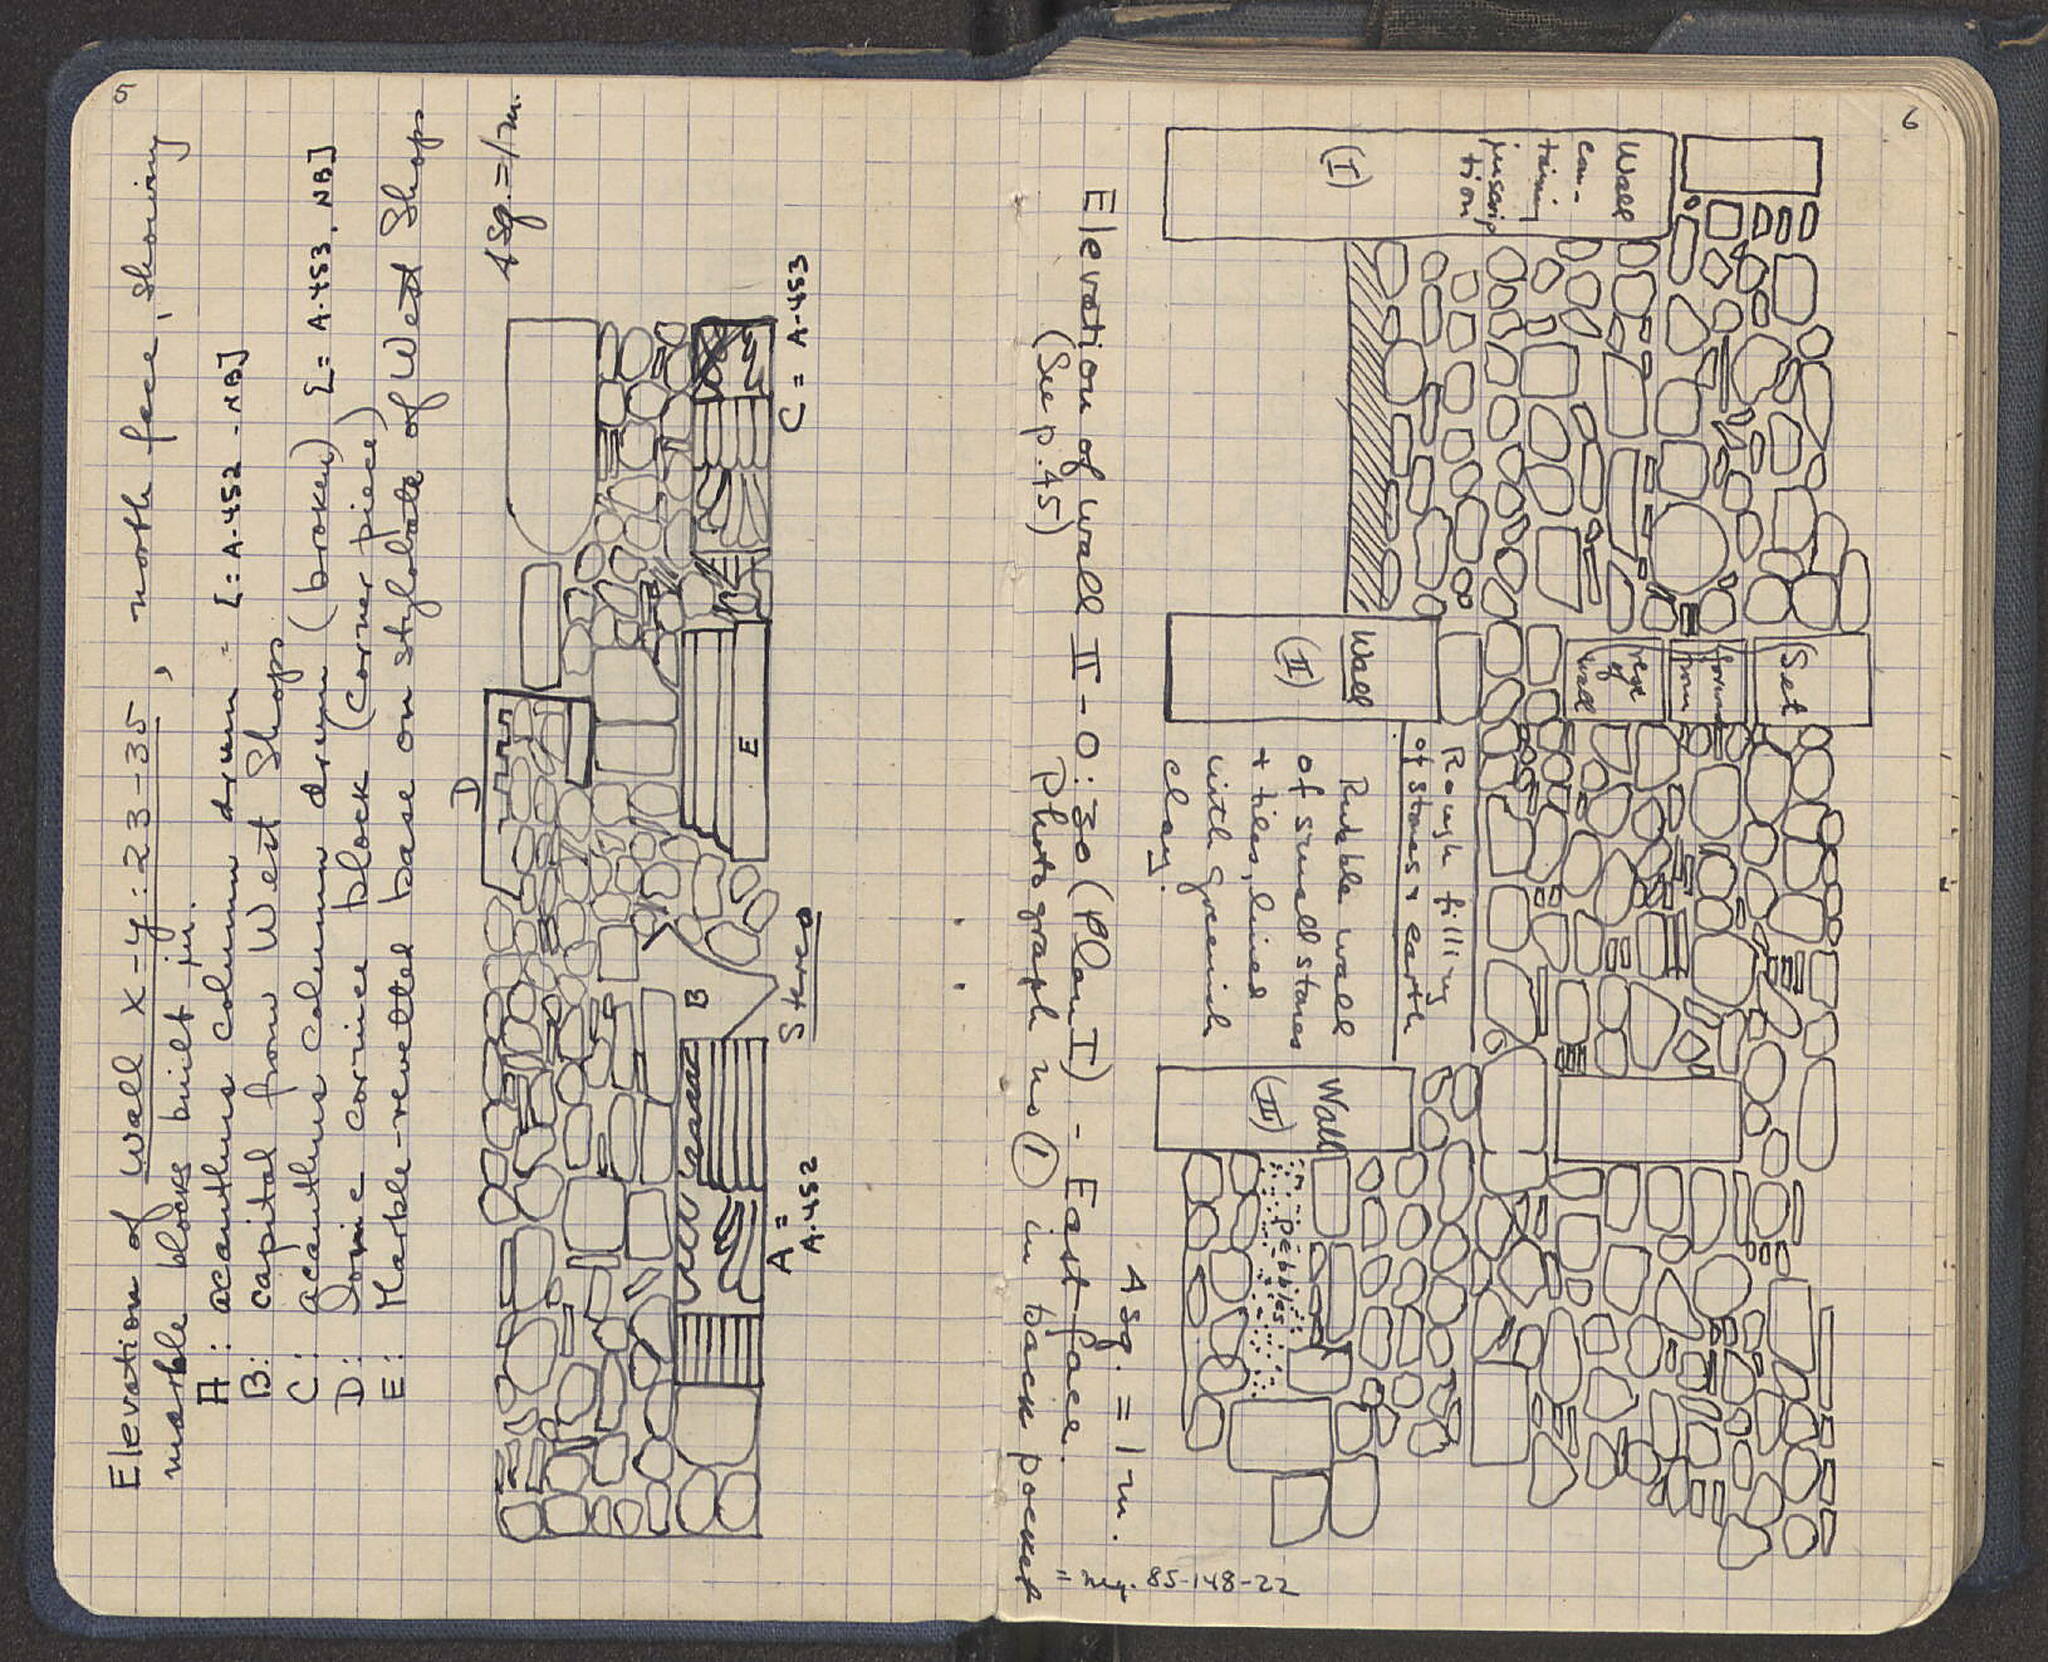 5
Elevation of Wall X-Y:23-35, north face, showing
marble blocks built in.
A: acanthus column drum = [= A-452 - NB]
B: capital from West Shops
C: acanthus column drum (broken) [= A-453, NB]
D: Ionic cornice block (corner piece)
E: Marble-revetted base on stylobate of West Shops
4 sq. = 1 m.
D
E
B
C = A-453
Stereo
A =
A-452
6
Wall
con-
taining
inscrip
tion
(I)
Wall
(II)
(Set
forward
from
rest
of
wall
Rough filling
of stones & earth
Rubble wall
of small stones
+ tiles, lined
with greenish
clay.
Wall
(III)
pebbles
4 sq. = 1 m.
Elevation of wall II-O:30 (Plan I) - East face.
(See p. 45) Photograph no 1 in back pocket
= neg. 85-148-22